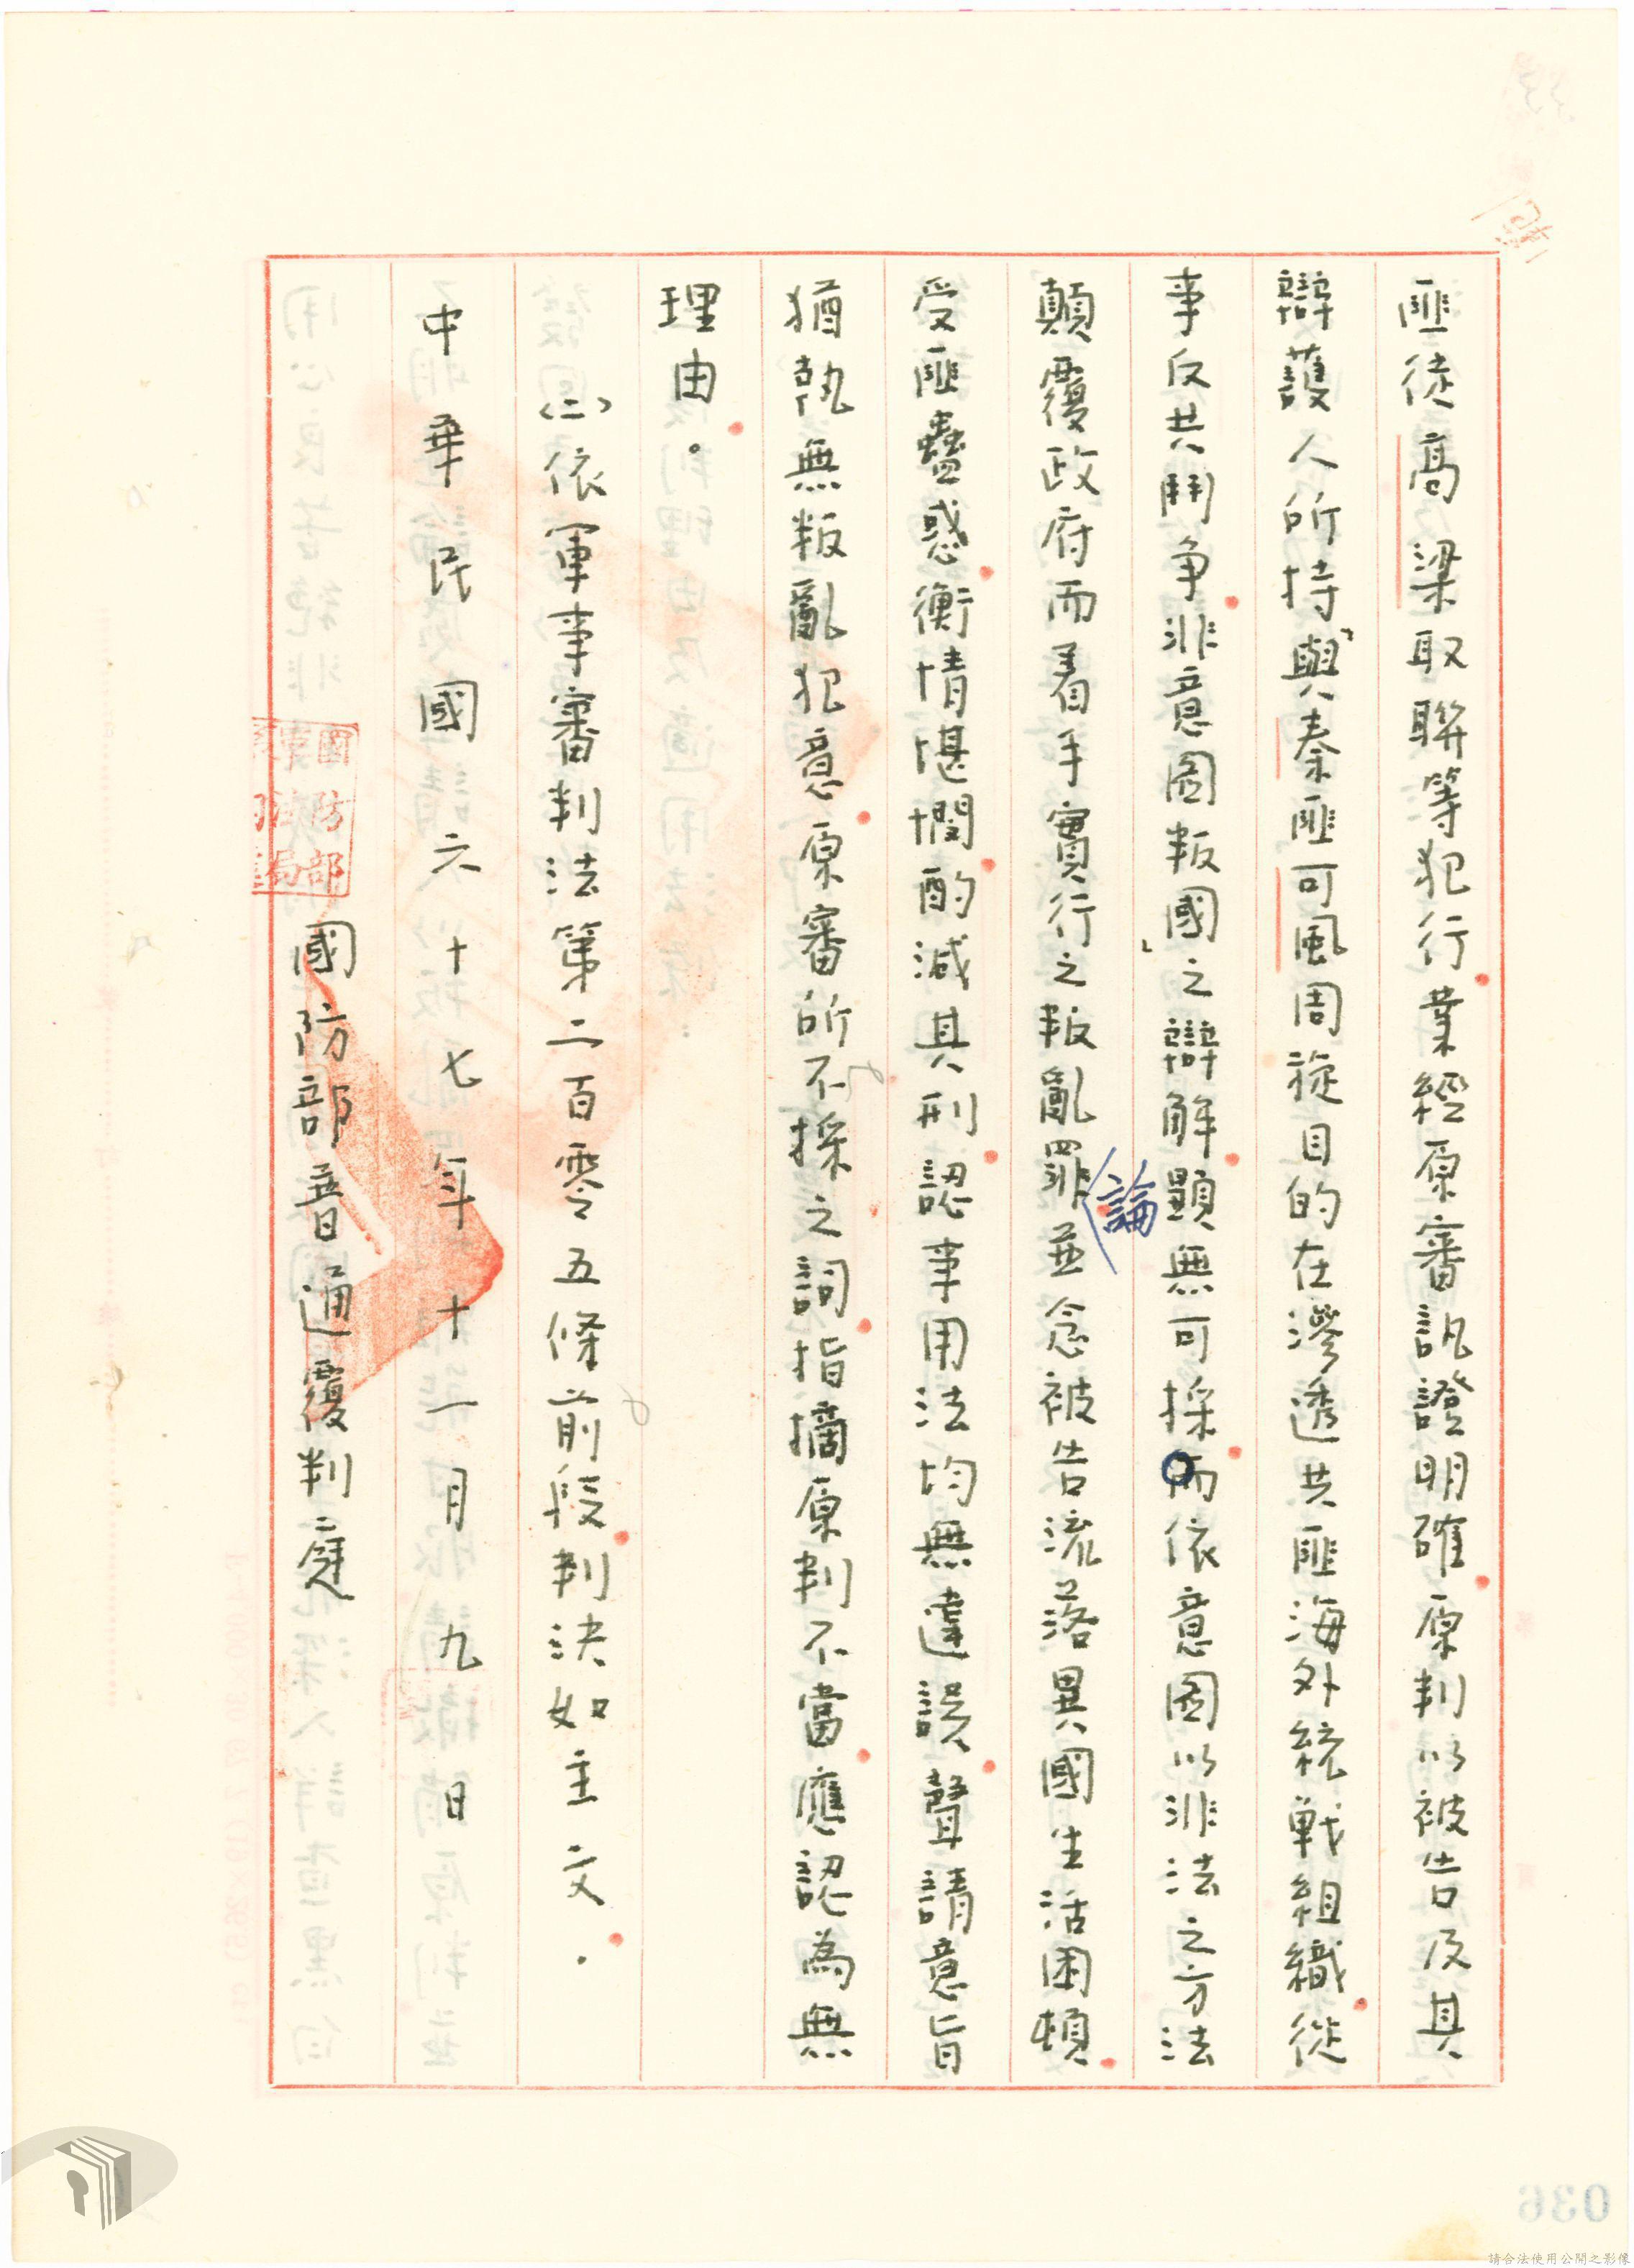 匪徒高梁取聯等犯行業經原審訊證明確原判以被告及其
辯護人所持「與秦匪可風周旋目的在滲透共匪海外統戰組織從
事反共鬥爭非意圖叛國」之辯解顯無可採而依意圖以非法之方法
顛覆政府而着手實行之叛亂罪論並念被告流落異國生活困頓
受匪蠱惑衡情堪憫酌減其刑認事用法均無違誤聲請意旨
猶執無叛亂犯意原審所不採之詞指摘原判不當應認為無
理由。
(二)依軍事審判法第二百零五條前段判決如主文.
中華民國六十七年十一月九日
國防部普通覆判庭
國防部
036
請合法使用公開之影像